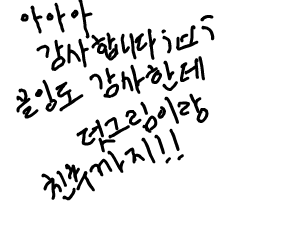 아아아
감사합니다 ;ㅁ;
골잉도 감사한데
덧그림이랑
친추까지!!